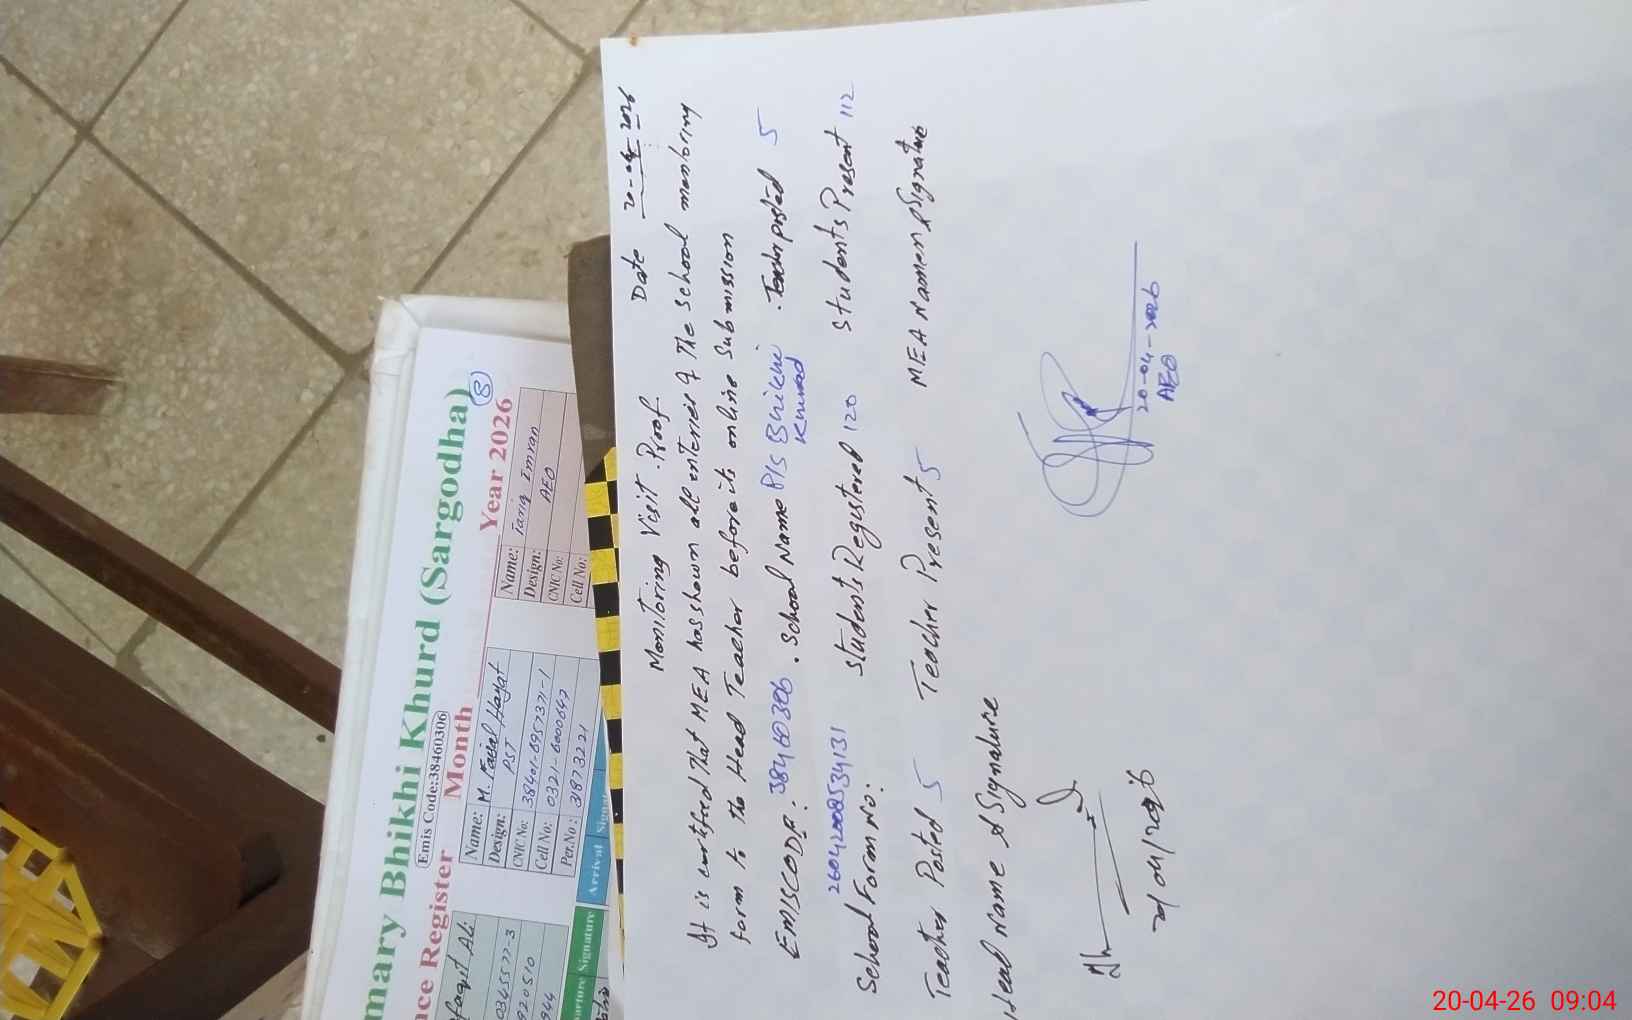 Monitoring Visit Proof
Date 20-04-2026
It is certified That MEA has shown all enteries of The School monitoring
form to the Head Teacher before its online Submission
EMISCODE: 38460306 . School Name P/S Bhikhi Khurad . Teacher posted 5
26042008534131
School Form No: Students Registered 120 Students Present 112
Teacher Posted 5 Teacher Present 5 MEA Name & Signature
Head Name & Signature
20-04-2026
AEO
mary Bhikhi Khurd (Sargodha)
Emis Code:38460306
nce Register Month Year 2026
8
Ali
03455577-3
920510
944
Name: M. Faisal Hayat
Design: PST
CNIC No: 38401-6957371-1
Cell No: 0321-6000642
Per.No: 31873221
Name: Tariq Imran
Design: AEO
CNIC No:
Cell No:
arture Signature Arrival Signa
20-04-26 09:04